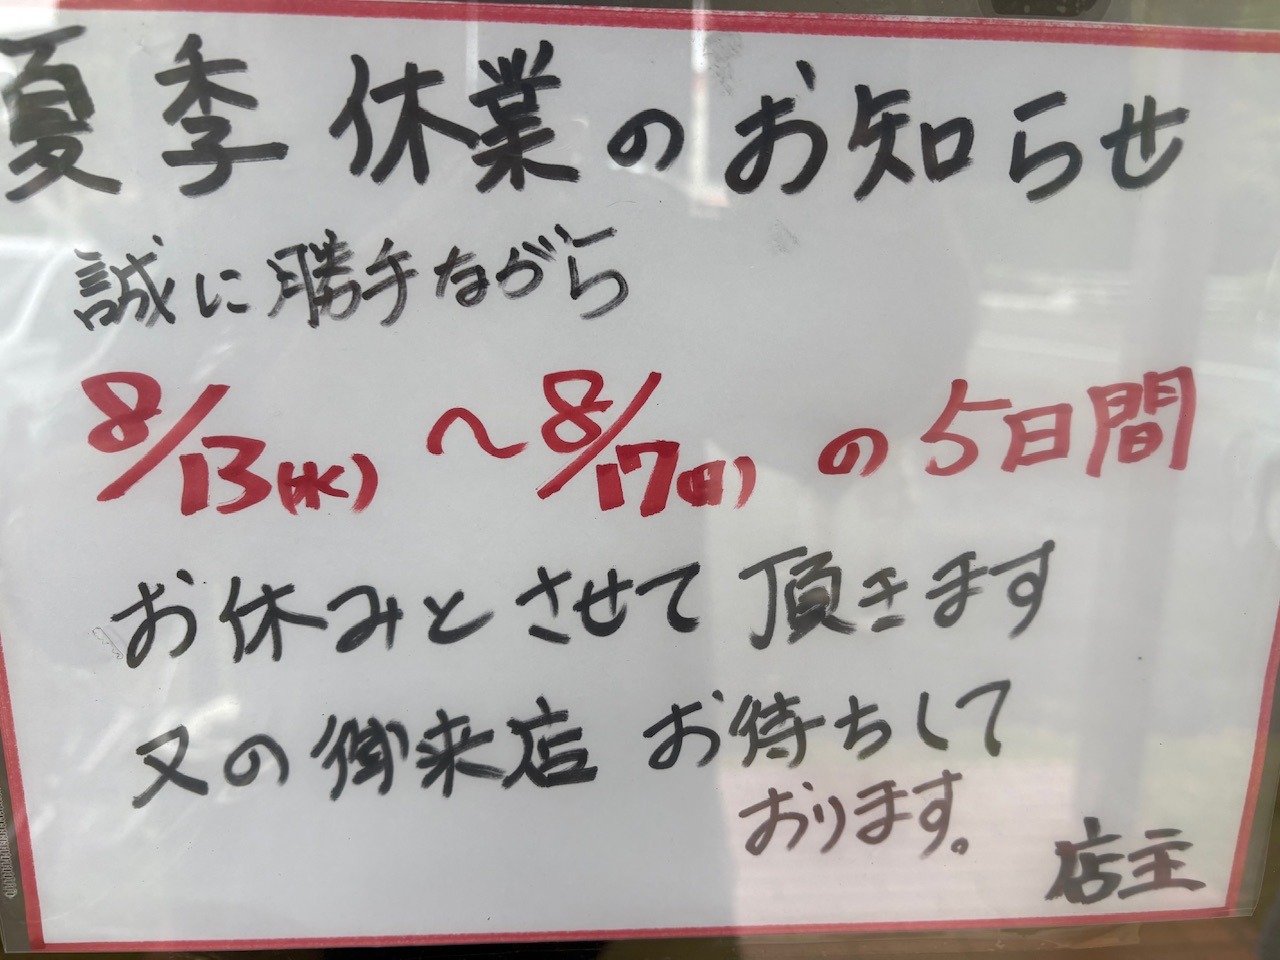 夏季休業のお知らせ
誠に勝手ながら
8/13(水) 〜 8/17(日) の5日間
お休みとさせて頂きます
又の御来店お待ちして
おります。
店主